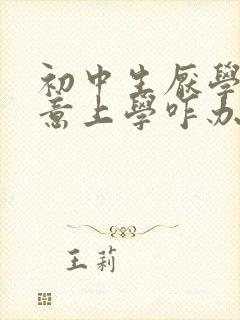 初中生厌學
意上學咋办
王莉